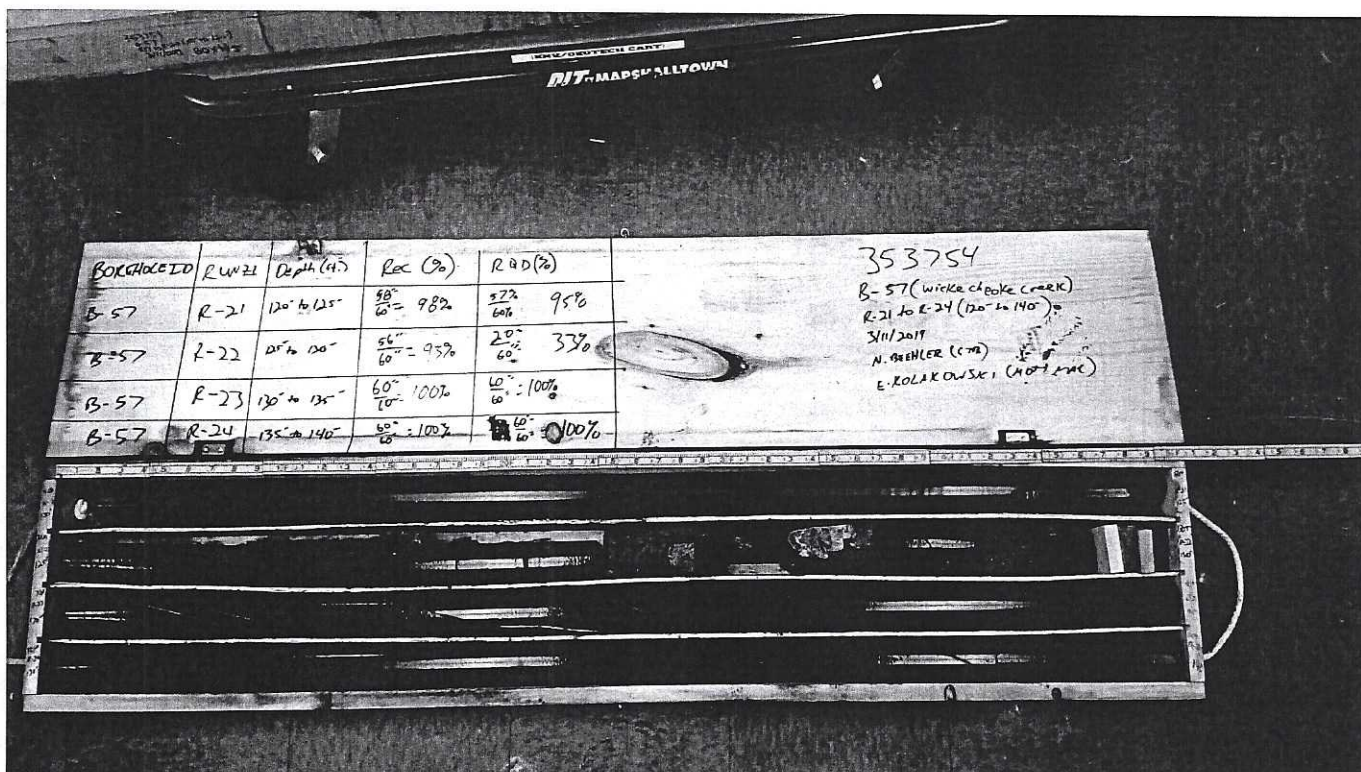 KMK/DRUTECH CART
MARSHALLTOWN
BOREHOLE ID RUN21 Depth (ft.) Rec (%) RQD (%)
B-57 R-21 120' to 125' 58"/60" = 98% 57%/60% 95%
B-57 R-22 125' to 130' 56"/60" = 93% 20"/60" 33%
B-57 R-23 130' to 135' 60"/60" = 100% 60"/60" = 100%
B-57 R-24 135' to 140' 60"/60" = 100% 60"/60" = 100%
353754
B-57 (Wickecheoke Creek)
R-21 to R-24 (120' to 140')
3/11/2019
N. BEEHLER (CTR)
E. KOLAKOWSKI (MOTT MAC)